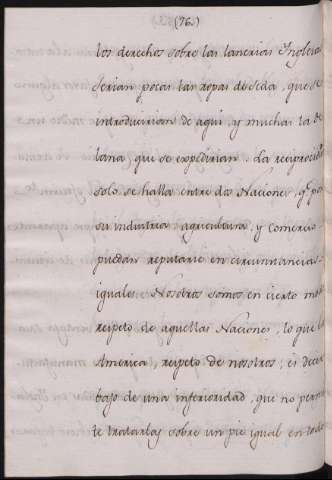 (76.)
los derechos sobre las lanerias Inglesas
serian pocas las ropas de seda, que se
introducirian de aqui, y muchas las de
lana, que se expedirian. La reciprocidad
solo se halla entre dos Naciones, q.e por
su industria agricultura, y comercio
puedan reputarse en circunstancias
iguales. Nosotros somos en cierto modo
respeto de aquellas Naciones, lo que la
America, respeto de nosotros; es decir
bajo de una inferioridad, que no permi
te tratarlas sobre un pie igual en todo